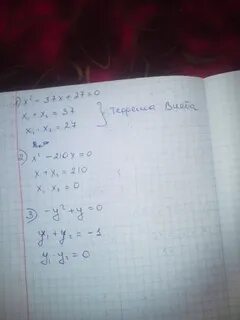 1) x² - 37x + 27 = 0
x₁ + x₂ = 37
x₁ · x₂ = 27
Теорема Виета
2) x² - 210x = 0
x + x₂ = 210
x₁ · x₂ = 0
3) -y² + y = 0
y₁ + y₂ = -1
y₁ · y₂ = 0